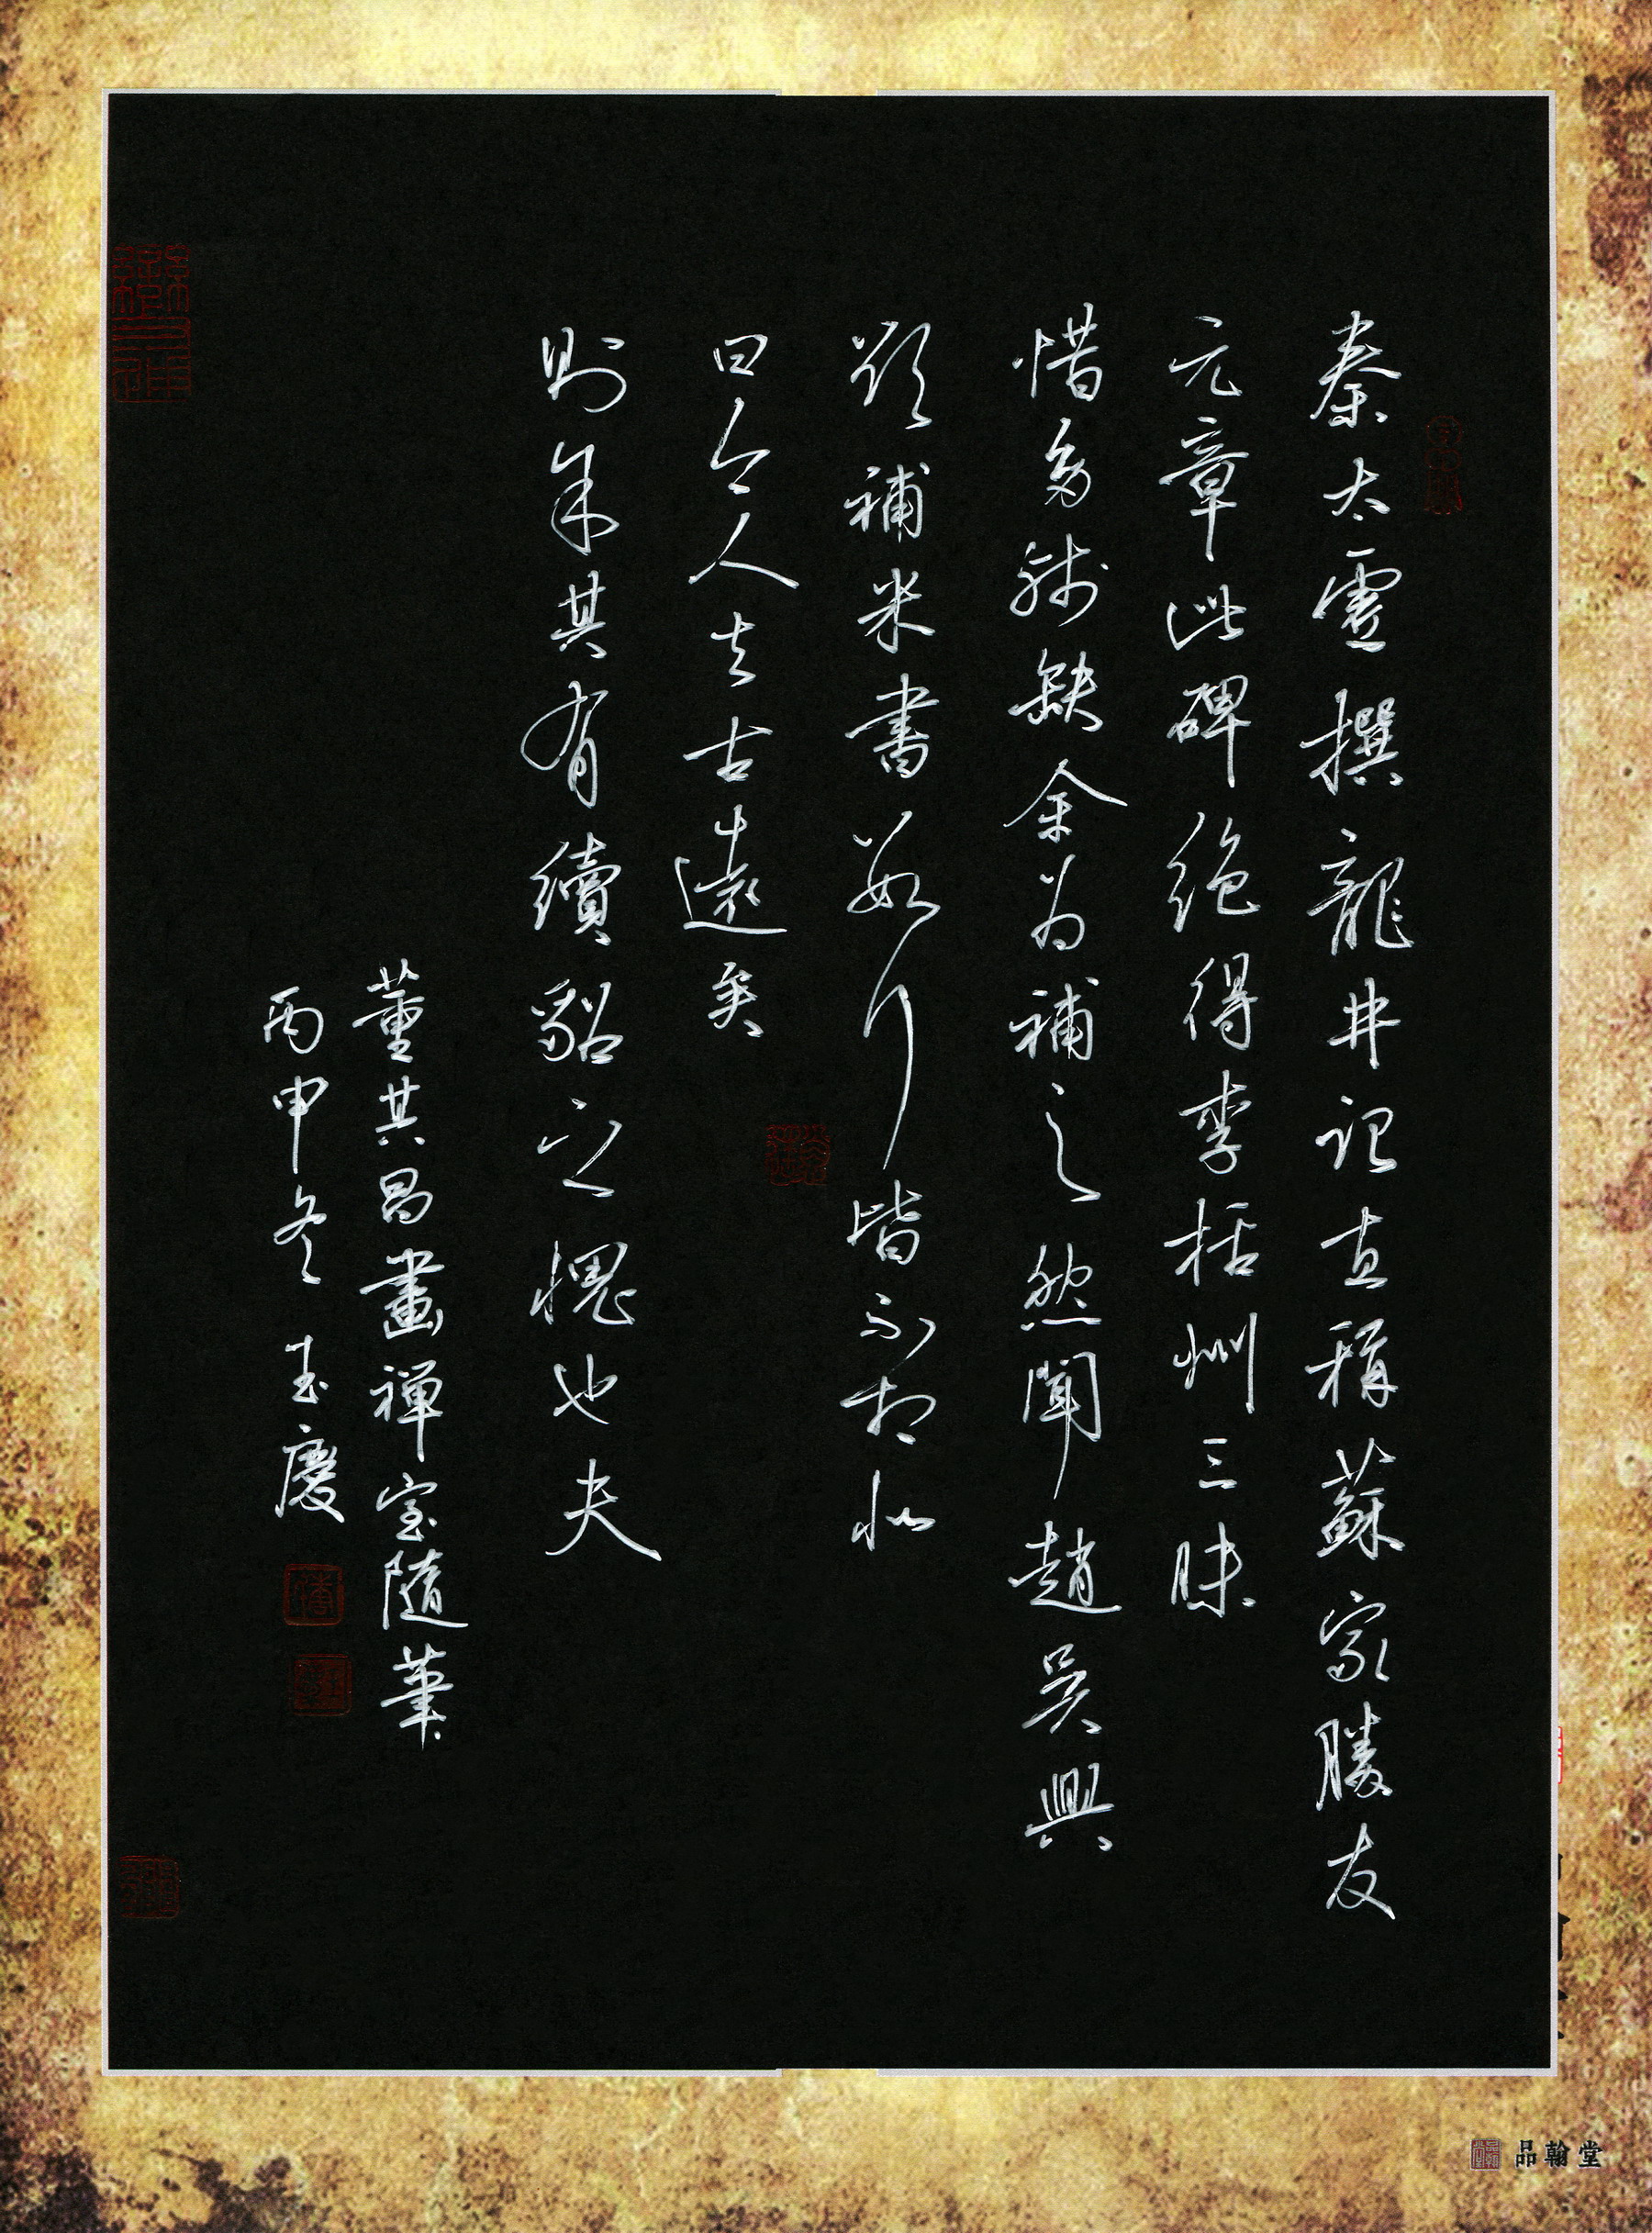 秦太虛撰龍井記直稱蘇家勝友
元章此碑絕得李括州三昧
惜多殘缺余為補之然聞趙吳興
欲補米書數行皆不相似
曰今人去古遠矣
則余其有續貂之愧也夫
董其昌畫禪室隨筆
丙申冬 玉慶
品翰堂